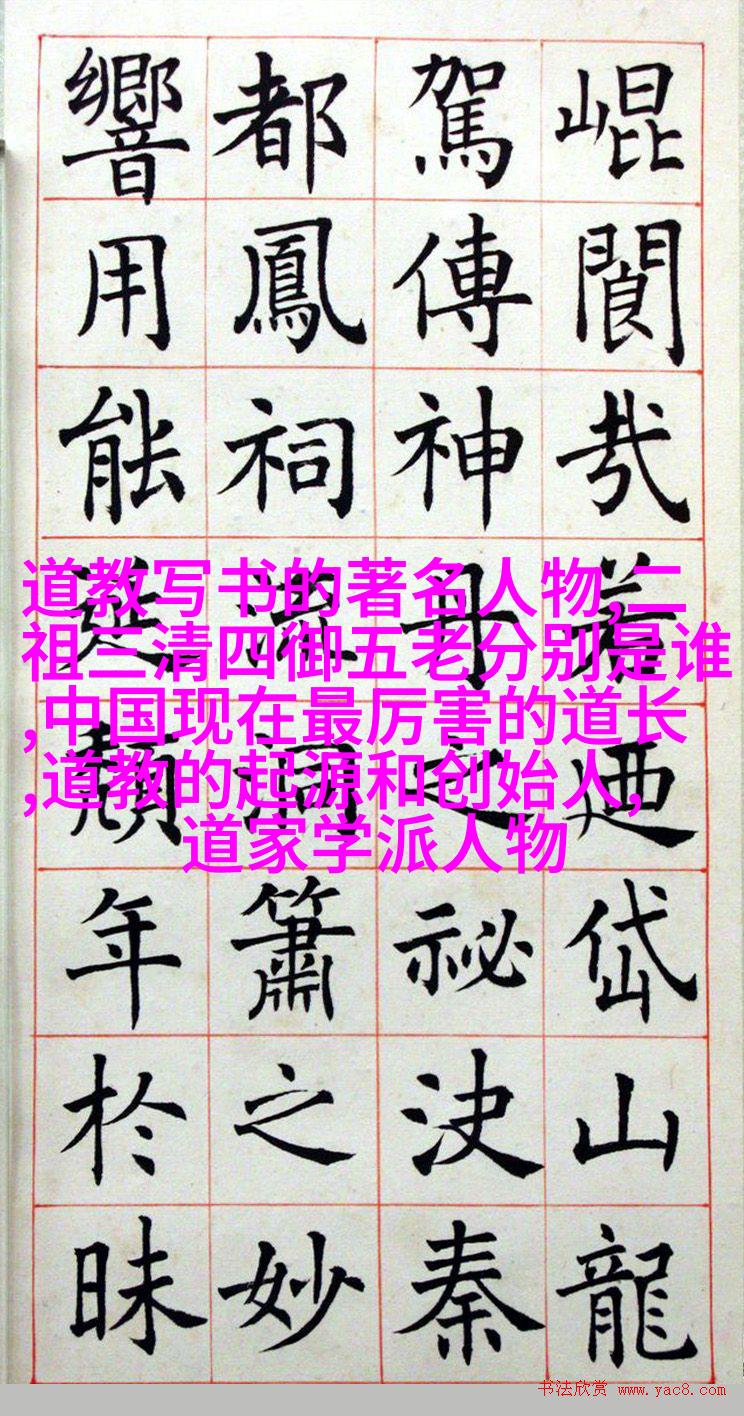 崐閬若迺岱山龍
駕傳神丹之祕決秦
都鳳祠洞簫之妙
響用能延頹年於昧
道教写书的著名人物,二
祖三清四御五老分别是谁
,中国现在最厉害的道长
,道教的起源和创始人,
道家学派人物
书法欣赏 www.yac8.com